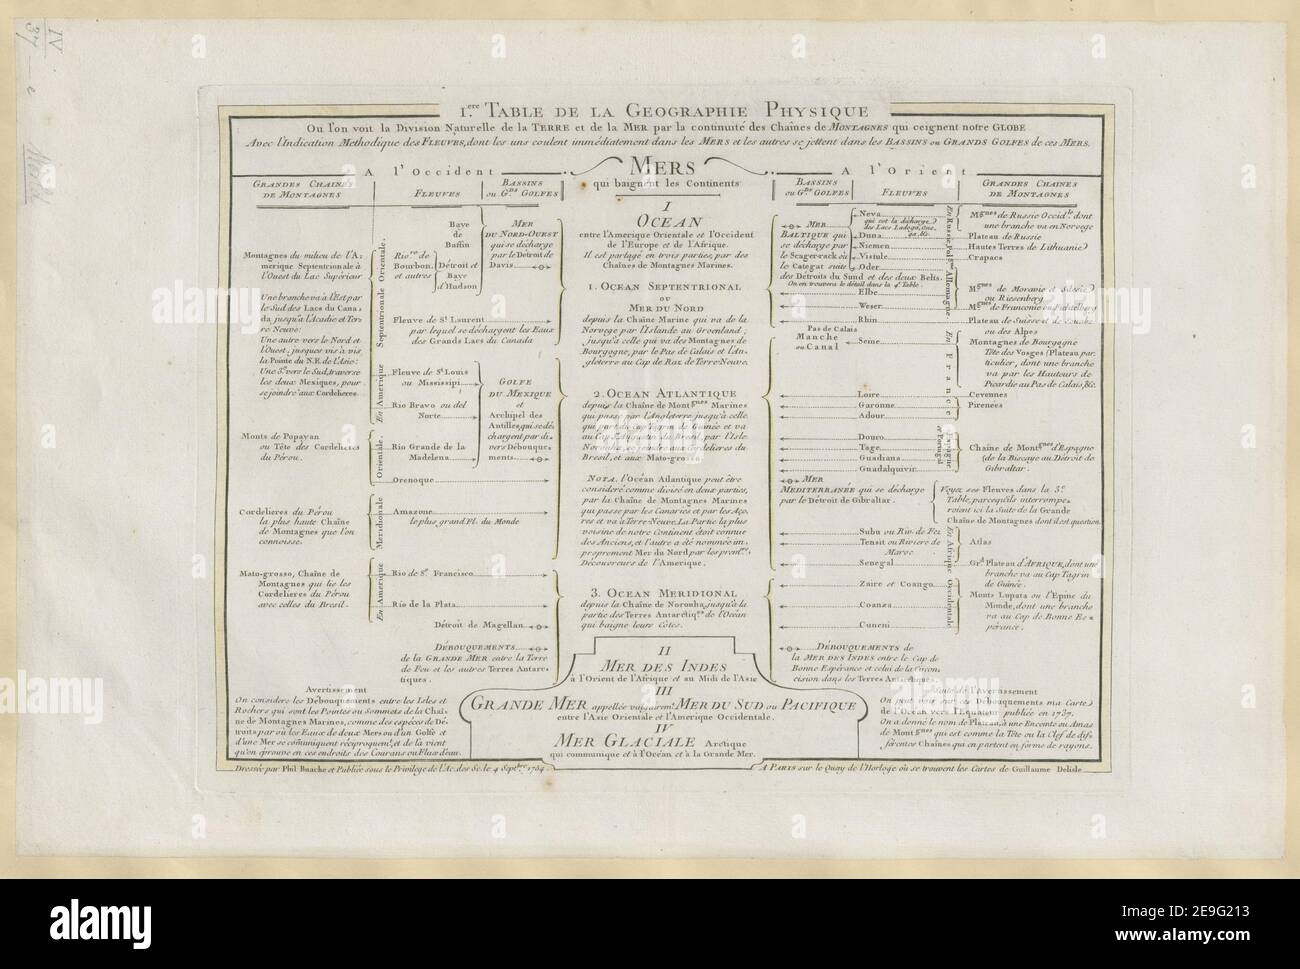 IV
37
1.ere TABLE DE LA GEOGRAPHIE PHYSIQUE
Ou l'on voit la Division Naturelle de la TERRE et de la MER par la continuité des Chaînes de MONTAGNES qui ceignent notre GLOBE
Avec l'Indication Methodique des FLEUVES, dont les uns coulent immédiatement dans les MERS et les autres se jettent dans les BASSINS ou GRANDS GOLFES de ces MERS.
A l'Occident
GRANDES CHAINES
DE MONTAGNES
FLEUVES
BASSINS
ou G.ds GOLFES
Montagnes du milieu de l'A-
merique Septentrionale à
l'Ouest du Lac Supérieur
Une branche va à l'Est par
le Sud des Lacs du Cana-
da, jusqu'à l'Acadie et Ter-
re Neuve:
Une autre vers le Nord et
l'Ouest, jusques vis à vis
la Pointe du N.E. de l'Asie:
Une 3.e vers le Sud, traverse
les deux Mexiques, pour
se joindre aux Cordelieres.
Monts de Popayan
ou Tête des Cordelieres
du Pérou.
Cordelieres du Pérou
la plus haute Chaîne
de Montagnes que l'on
connoisse.
Mato-grosso, Chaîne de
Montagnes qui lie les
Cordelieres du Pérou
avec celles du Bresil.
En Amerique Septentrionale Orientale.
En Amerique Meridionale Orientale.
Baye
de
Baffin
Riv.res de
Bourbon
et autres
Détroit et
Baye
d'Hudson
Fleuve de S.t Laurent
par lequel se déchargent les Eaux
des Grands Lacs du Canada
Fleuve de S.t Louis
ou Mississipi
Rio Bravo ou del
Norte
Rio Grande de la
Madelena
Orenoque
Amazone
le plus grand Fl. du Monde
Rio de S.n Francisco
Rio de la Plata
Détroit de Magellan
MER
DU NORD-OUEST
qui se décharge
par le Detroit de
Davis
GOLFE
DU MEXIQUE
et
Archipel des
Antilles, qui se dé-
chargent par di-
vers Débouque-
ments
DÉBOUQUEMENTS
de la GRANDE MER entre la Terre
de Feu et les autres Terres Antarc-
tiques.
MERS
qui baignent les Continents
I
OCEAN
entre l'Amerique Orientale et l'Occident
de l'Europe et de l'Afrique.
Il est partagé en trois parties, par des
Chaînes de Montagnes Marines.
1. OCEAN SEPTENTRIONAL
OU
MER DU NORD
depuis la Chaîne Marine qui va de la
Norvege par l'Islande au Groenland;
jusqu'à celle qui va des Montagnes de
Bourgogne, par le Pas de Calais et l'An-
gleterre au Cap de Raz de Terre-Neuve.
2. OCEAN ATLANTIQUE
depuis la Chaîne de Montgnes Marines
qui passe par l'Angleterre jusqu'à celle
qui part du Cap Tagrin de Guinée et va
au Cap S.t Augustin du Bresil, par l'Isle
Noronha, se joindre aux Cordelieres du
Bresil, et aux Mato-grosso
NOTA. l'Océan Atlantique peut être
consideré comme divisé en deux parties,
par la Chaîne de Montagnes Marines
qui passe par les Canaries et par les Aço-
res et va à Terre-Neuve. La Partie la plus
voisine de notre Continent étoit connue
des Anciens, et l'autre a été nommée im-
proprement Mer du Nord par les prem.ers
Découvreurs de l'Amerique.
3. OCEAN MERIDIONAL
depuis la Chaîne de Noronha, jusqu'à la
partie des Terres Antarctiq.es de l'Océan
qui baigne leurs Côtes.
II
MER DES INDES
à l'Orient de l'Afrique et au Midi de l'Asie
III
GRANDE MER appellée vulgairem.t MER DU SUD ou PACIFIQUE
entre l'Asie Orientale et l'Amerique Occidentale.
IV
MER GLACIALE Arctique
qui communique et à l'Océan et à la Grande Mer.
A l'Orient
BASSINS
ou G.ds GOLFES
FLEUVES
GRANDES CHAINES
DE MONTAGNES
MER
BALTIQUE qui
se décharge par
le Scager-rack ou
le Categat suite
des Détroits du Sund et des deux Belts.
On en trouvera le détail dans la 4.e Table.
Neva
qui est la décharge
des Lacs Ladoga, One-
ga, &c.
Duna
Niemen
Vistule
Oder
Elbe
Weser
Rhin
Pas de Calais
Manche
ou Canal
Seine
Loire
Garonne
Adour
Douro
Tage
Guadiana
Guadalquivir
MER
MEDITERRANÉE qui se décharge
par le Détroit de Gibraltar.
Voyez ses Fleuves dans la 3.e
Table, parcequ'ils interrompe-
roient ici la Suite de la Grande
Chaîne de Montagnes dont il est question.
Subu ou Riv. de Fez
Tensit ou Riviere de
Maroc
Senegal
Zaire et Coango
Coanza
Cuneni
DÉBOUQUEMENTS de
la MER DES INDES entre le Cap de
Bonne Espérance et celui de la Circon-
cision dans les Terres Antarctiques.
En Russie
Pol.ne
Allemagne
En France
Espagne
et Portugal
En Afrique Occidentale
M.gnes de Russie Occid.le dont
une branche va en Norvege
Plateau de Russie
Hautes Terres de Lithuanie
Crapacs
M.gnes de Moravie et Silesie
ou Riesenberg
M.gnes de Franconie ou Fichtelberg
Plateau de Suisse et de Souabe
ou des Alpes
Montagnes de Bourgogne
Tête des Vosges (Plateau par-
ticulier, dont une branche
va par les Hauteurs de
Picardie au Pas de Calais, &c.
Cevennes
Pirenées
Chaîne de Mont.gnes d'Espagne
(de la Biscaye au Détroit de
Gibraltar.
Atlas
Gr.d Plateau d'AFRIQUE, dont une
branche va au Cap Tagrin
de Guinée.
Monts Lupata ou l'Epine du
Monde, dont une branche
va au Cap de Bonne Es-
pérance.
Avertissement
On considere les Débouquements entre les Isles et
Rochers qui sont les Pointes ou Sommets de la Chaî-
ne de Montagnes Marines, comme des espéces de Dé-
troits par où les Eaux de deux Mers ou d'un Golfe et
d'une Mer se communiquent réciproquem.t, et de là vient
qu'on éprouve en ces endroits des Courans ou Flux d'eau.
Suite de l'Avertissement
On peut voir sur ces Débouquements ma Carte
de l'Océan vers l'Equateur publiée en 1737.
On a donné le nom de Plateau, à une Enceinte ou Amas
de Mont.gnes qui est comme la Tête ou la Clef de dif-
férentes Chaînes qui en partent en forme de rayons.
Dressée par Phil. Buache et Publiée sous le Privilege de l'Ac. des Sc. le 4 Sept.bre 1754
A PARIS sur le Quay de l'Horloge où se trouvent les Cartes de Guillaume Delisle
alamy
Image ID: 2E9G213
www.alamy.com